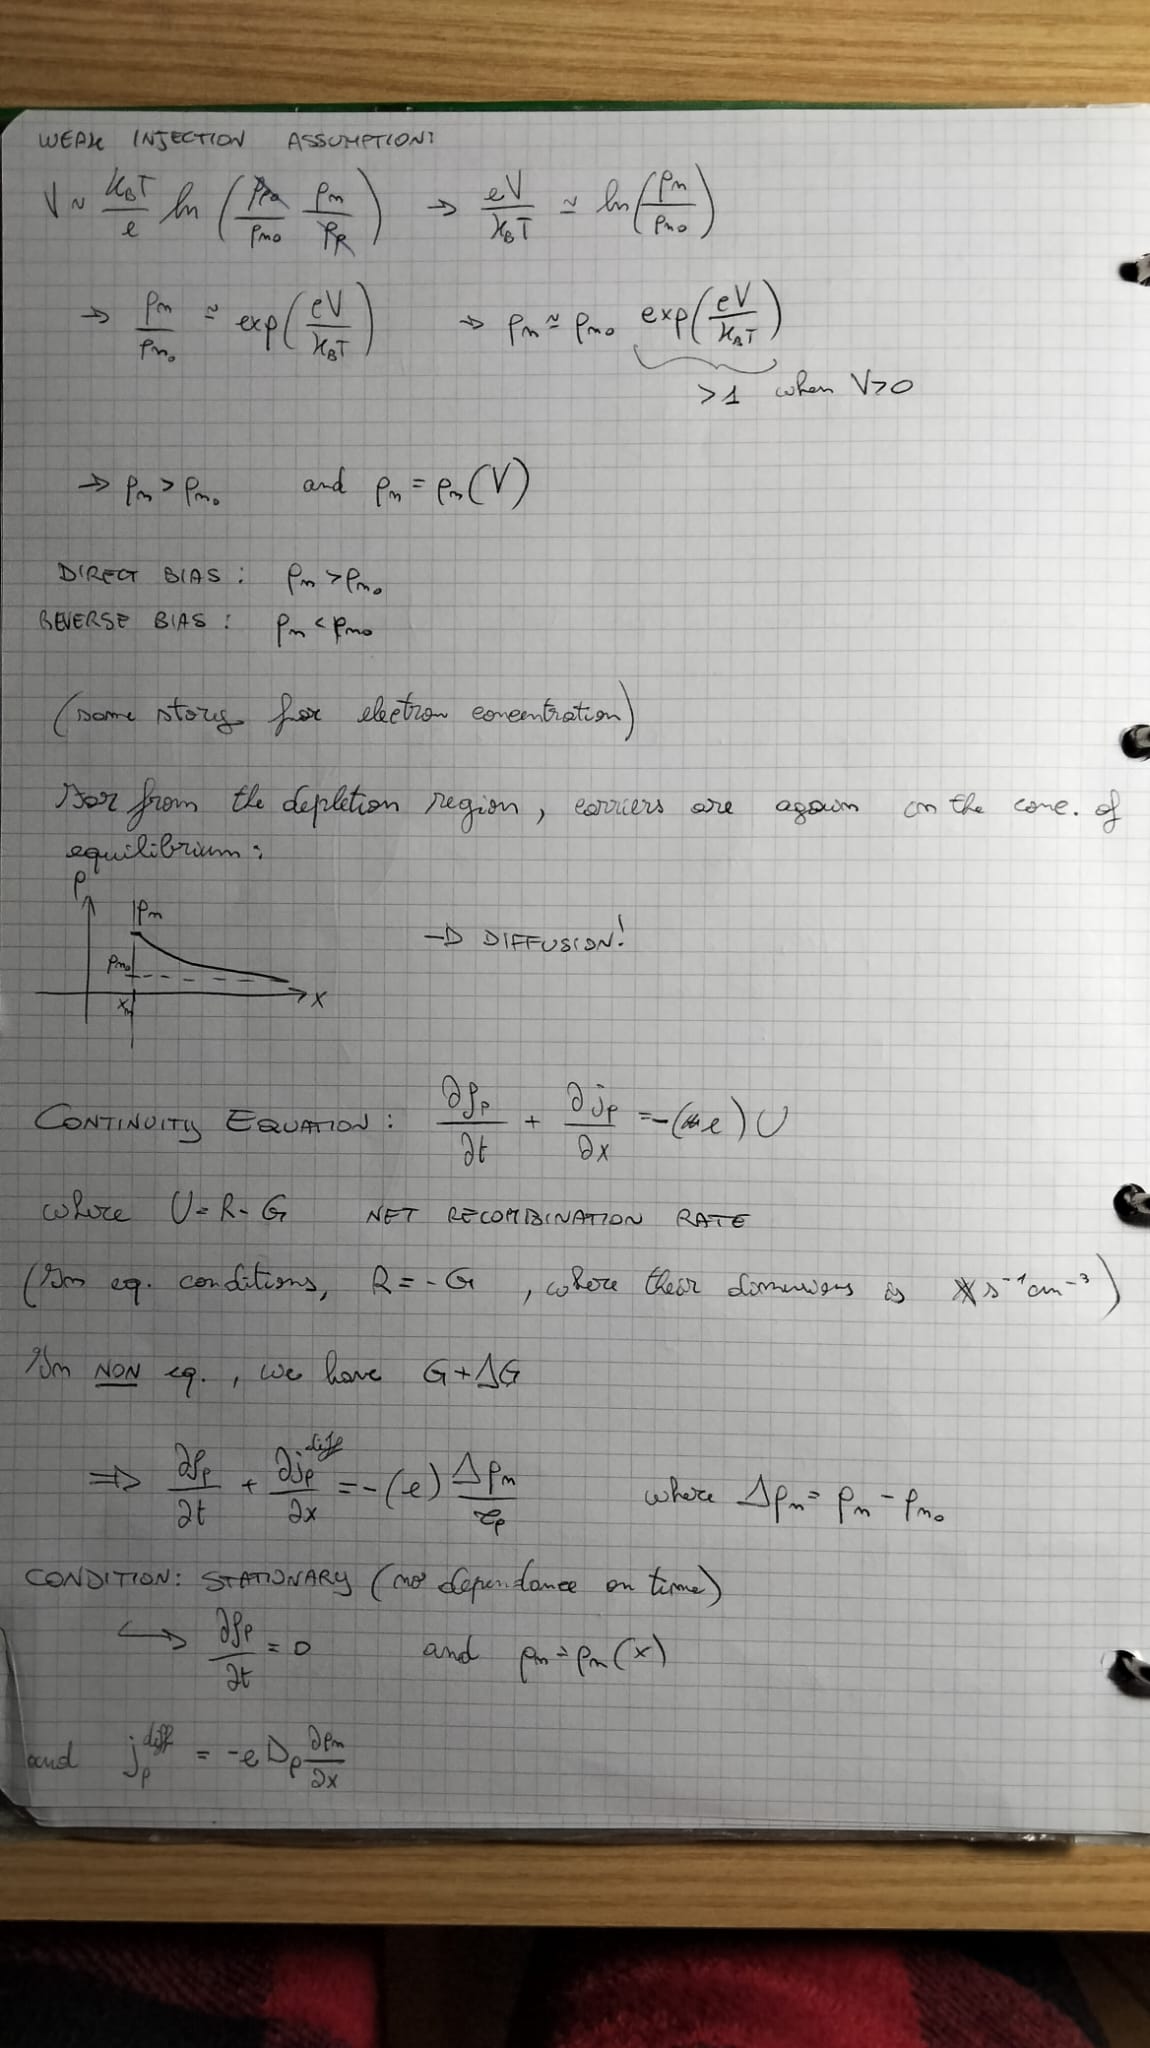 WEAK INJECTION ASSUMPTION:
V ~ K_BT/e ln (p_p0/p_n0 p_n/p_p) → eV/K_BT ≃ ln(p_n/p_n0)
⇒ p_n/p_n0 ≃ exp(eV/K_BT) ⇒ p_n ≃ p_n0 exp(eV/K_BT)
>1 when V>0
⇒ p_n > p_n0 and p_n = p_n(V)
DIRECT BIAS: p_n > p_n0
REVERSE BIAS: p_n < p_n0
(same story for electron concentration)
Far from the depletion region, carriers are again on the conc. of
equilibrium:
p
p_n
→ DIFFUSION!
p_n0
x_n
x
CONTINUITY EQUATION: ∂ρ_p/∂t + ∂j_p/∂x = -(e) U
where U = R - G NET RECOMBINATION RATE
(In eq. conditions, R = -G, where their dimensions is s⁻¹cm⁻³)
In NON eq., we have G + ΔG
⇒ ∂ρ_p/∂t + ∂j_p^diff/∂x = -(e) Δp_n/τ_p where Δp_n = p_n - p_n0
CONDITION: STATIONARY (no dependance on time)
↪ ∂ρ_p/∂t = 0 and p_n = p_n(x)
and j_p^diff = -e D_p ∂p_n/∂x